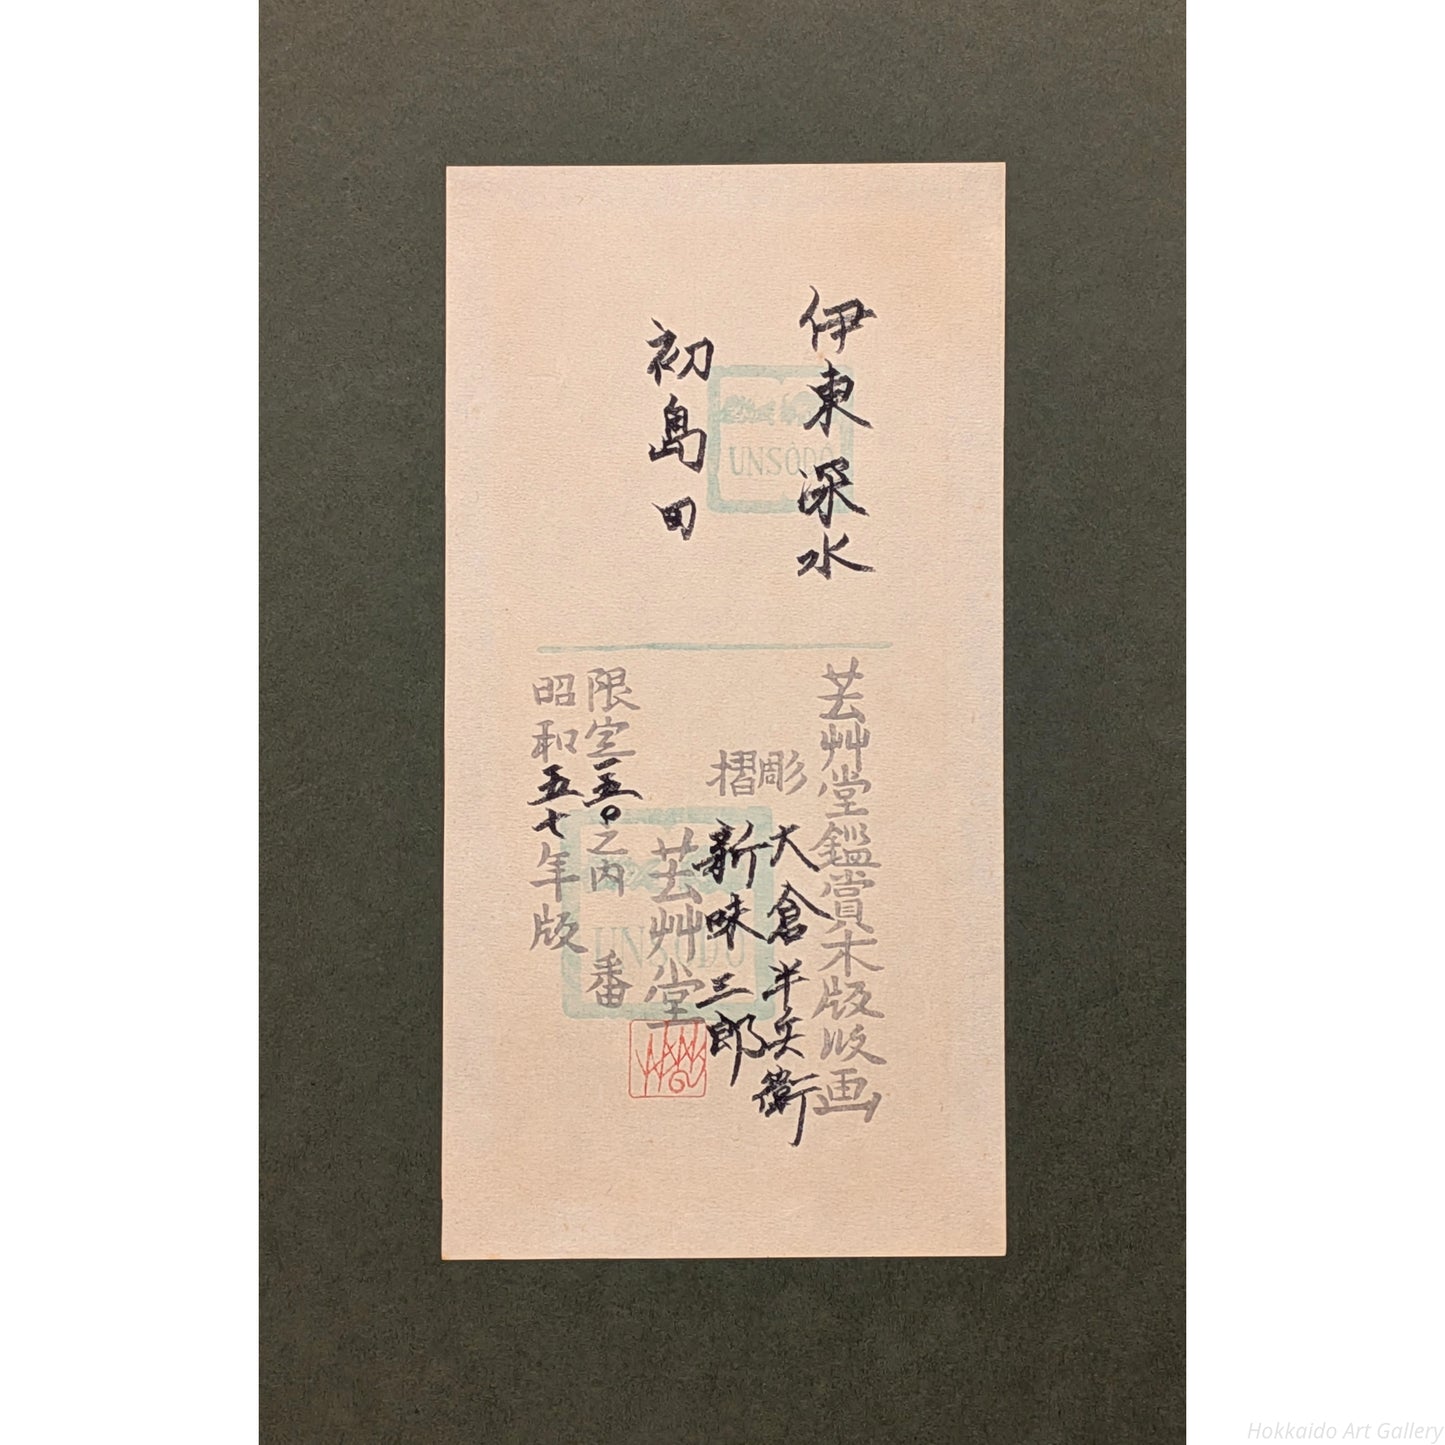 伊東深水
初島田
UNSODO
芸艸堂鑑賞木版版画
彫 大倉半兵衛
摺 新味三郎
芸艸堂
UNSODO
限定一五〇之内 番
昭和五七年版
Hokkaido Art Gallery